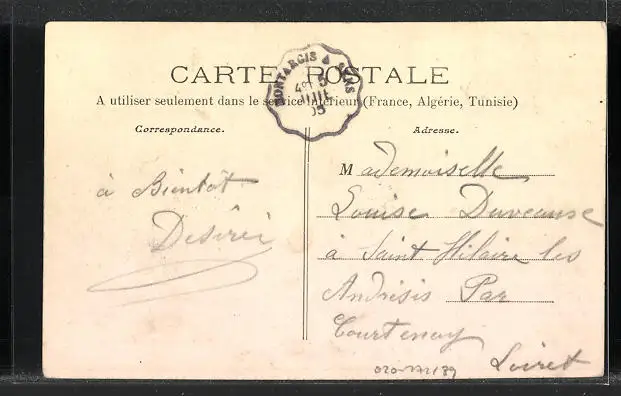 CARTE POSTALE
A utiliser seulement dans le service intérieur (France, Algérie, Tunisie)
MONTARGIS A SENS
4 5
JUIL
05
Correspondance.
à Bientôt
Désirée
Adresse.
Mademoiselle
Louise
à Saint Hilaire les
Andrésis Par
Courtenay
Loiret